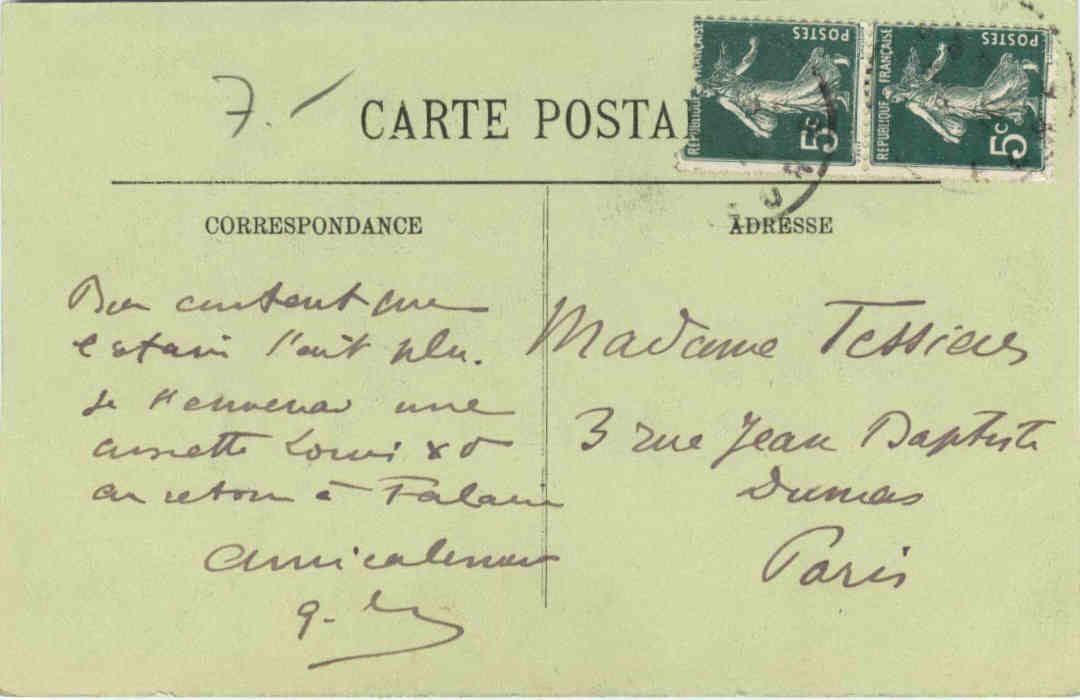 7.
CARTE POSTA
RÉPUBLIQUE FRANÇAISE
POSTES
5c
RÉPUBLIQUE FRANÇAISE
POSTES
5c
CORRESPONDANCE
ADRESSE
Bien content que
l'ait plu.
Je t'enverrai une
assiette Louis XV
au retour à Falaise
Amicalement
Madame Tessier
3 rue Jean Baptiste
Dumas
Paris